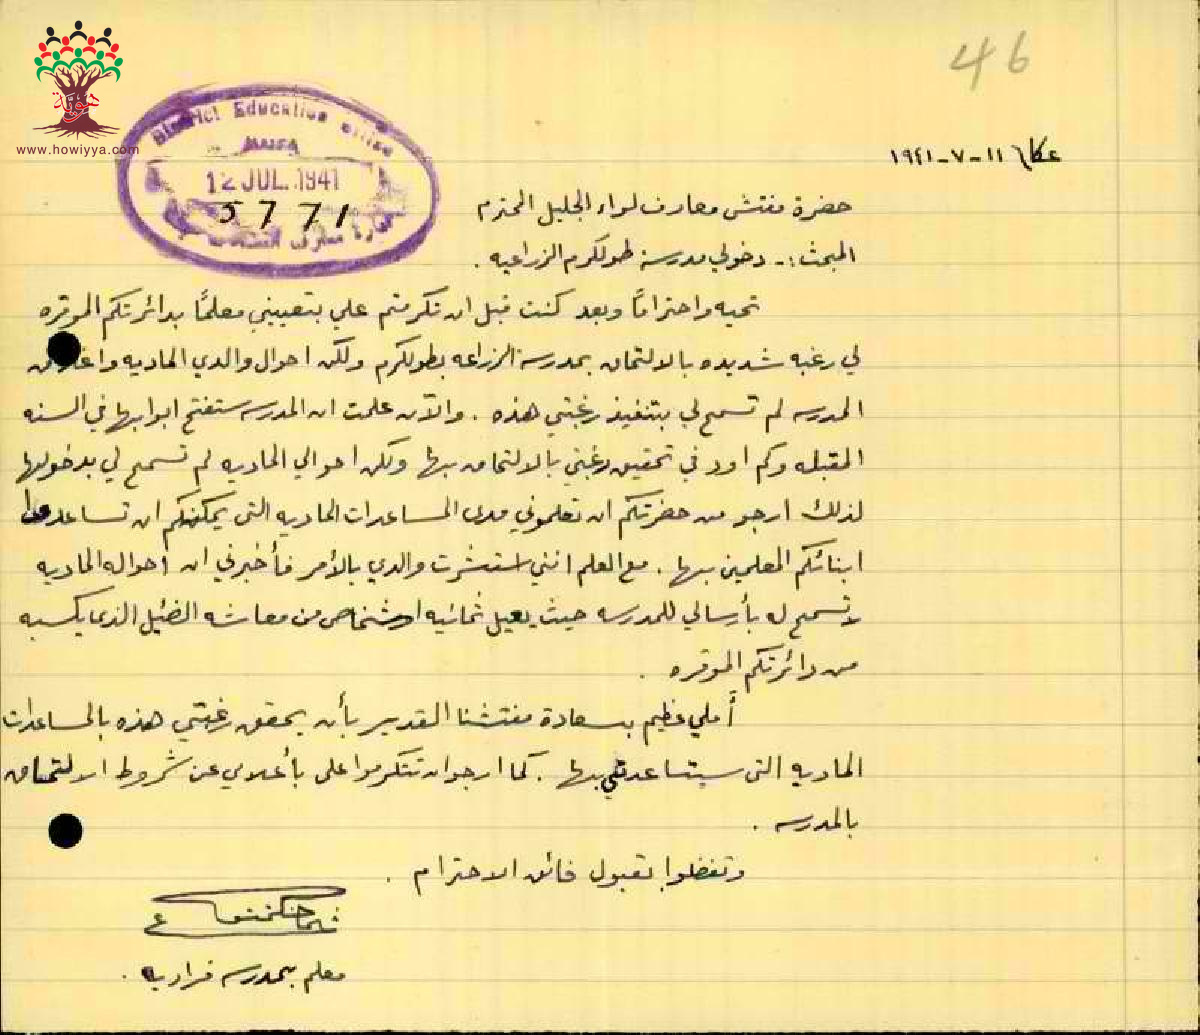 46
هوية
www.howiyya.com
District Education Office
HAIFA
12 JUL. 1941
5771
عكا ١١-٧-١٩٤١
حضرة مفتش معارف لواء الجليل المحترم
المبحث :- دخولي مدرسة طولكرم الزراعيه .
تحيه واحترامًا وبعد كنت قبل ان تكرمتم علي بتعييني معلمًا بدائرتكم الموقره
لي رغبه شديده بالالتحاق بمدرسة الزراعه بطولكرم ولكن احوال والدي الماديه
المدرسه لم تسمح لي بتنفيذ رغبتي هذه . والآن علمت ان المدرسه ستفتح ابوابها في السنه
المقبله وكم اود في تحقيق رغبتي بالالتحاق بها ولكن احوالي الماديه لم تسمح لي بدخولها
لذلك ارجو من حضرتكم ان تعلموني مدى المساعدات الماديه التي يمكنكم ان تساعدوا
ابنائكم المعلمين بها . مع العلم انني استشرت والدي بالأمر فأخبرني ان احواله الماديه
لا تسمح له بأرسالي للمدرسه حيث يعيل ثمانيه اشخاص من معاشه الضئيل الذي يكسبه
من دائرتكم الموقره .
أملي عظيم بسعادة مفتشنا القدير بأن يحقق رغبتي هذه بالمساعدات
الماديه التي سيتساعدني بها . كما ارجو ان تتكرموا علي بأعلامي عن شروط الالتحاق
بالمدرسه .
وتفضلوا بقبول فائق الاحترام .
معلم بمدرسه فراديه .